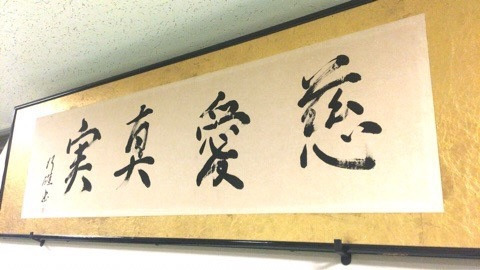 慈愛真実